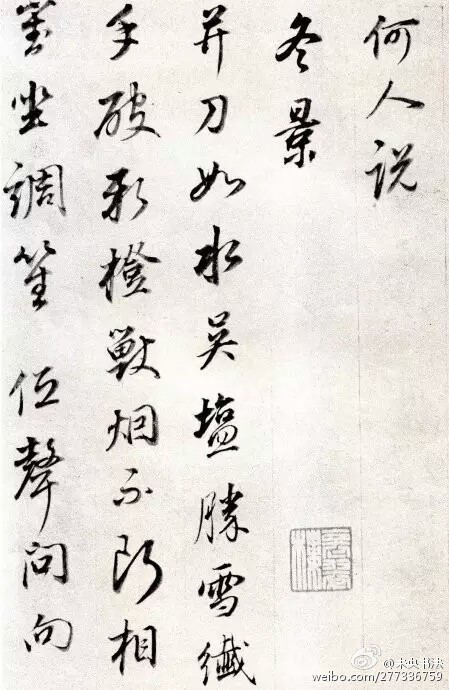 何人説
冬景
并刀如水吴塩勝雪纖
手破新橙獸烟不断相
對坐調笙 低聲問向
@未央书法
weibo.com/277336759